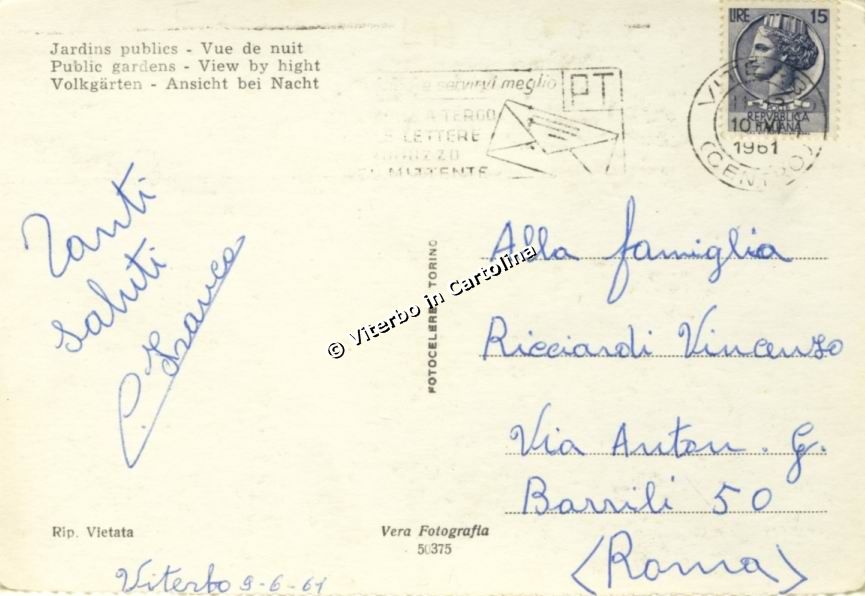 Jardins publics - Vue de nuit
Public gardens - View by hight
Volkgärten - Ansicht bei Nacht
e servirvi meglio
PT
A TERGO
LETTERE
MITTENTE
LIRE 15
REPVBBLICA
ITALIANA
VITERBO
10 VI
1961
(CENTRO)
Tanti
saluti
Franco
FOTOCELERE TORINO
© Viterbo in Cartolina
Alla famiglia
Ricciardi Vincenzo
Via Anton. G.
Barrili 50
(Roma)
Rip. Vietata
Vera Fotografia
50375
Viterbo 9-6-61